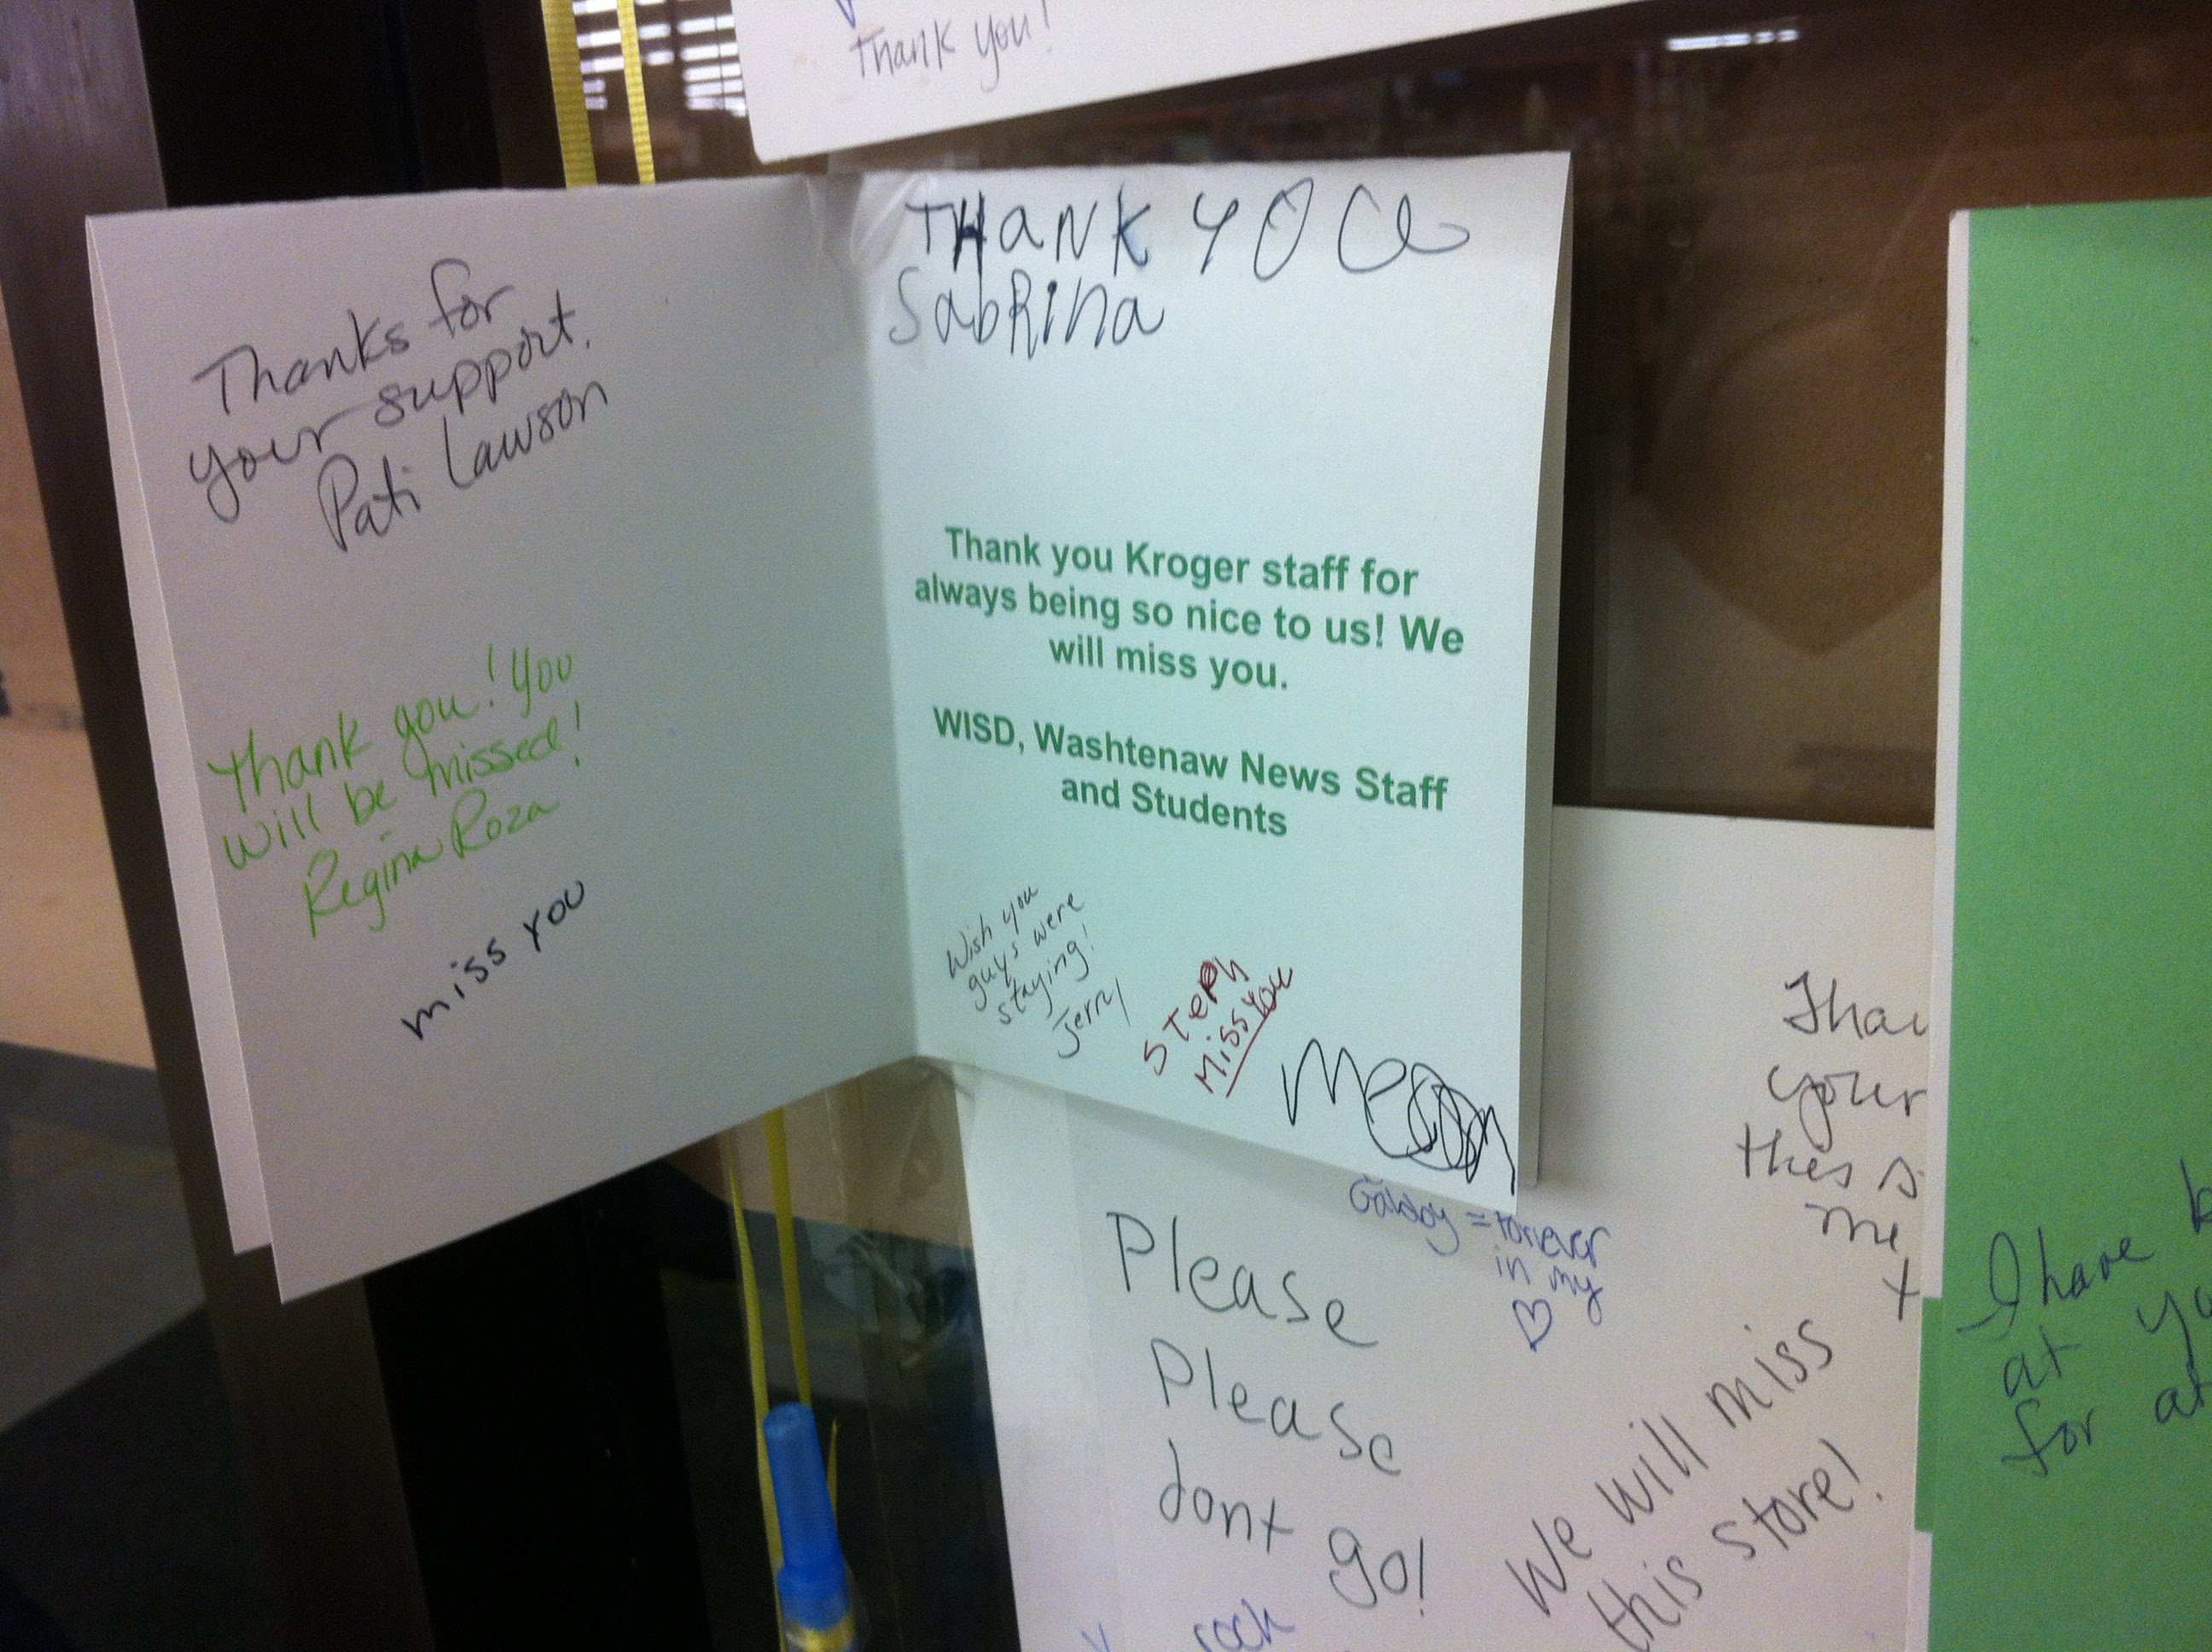 Thank you!
Thanks for
your support.
Pati Lawson
Thank you! You
will be missed!
Regina Roza
miss you
THaNK YOU
SabRina
Thank you Kroger staff for
always being so nice to us! We
will miss you.
WISD, Washtenaw News Staff
and Students
Wish you
guys were
staying!
Jerry
STePh
Miss You
Gabby = forever
in my
Please
Please
dont go!
We will miss
this store!
your
me
I have
at
for at
rock